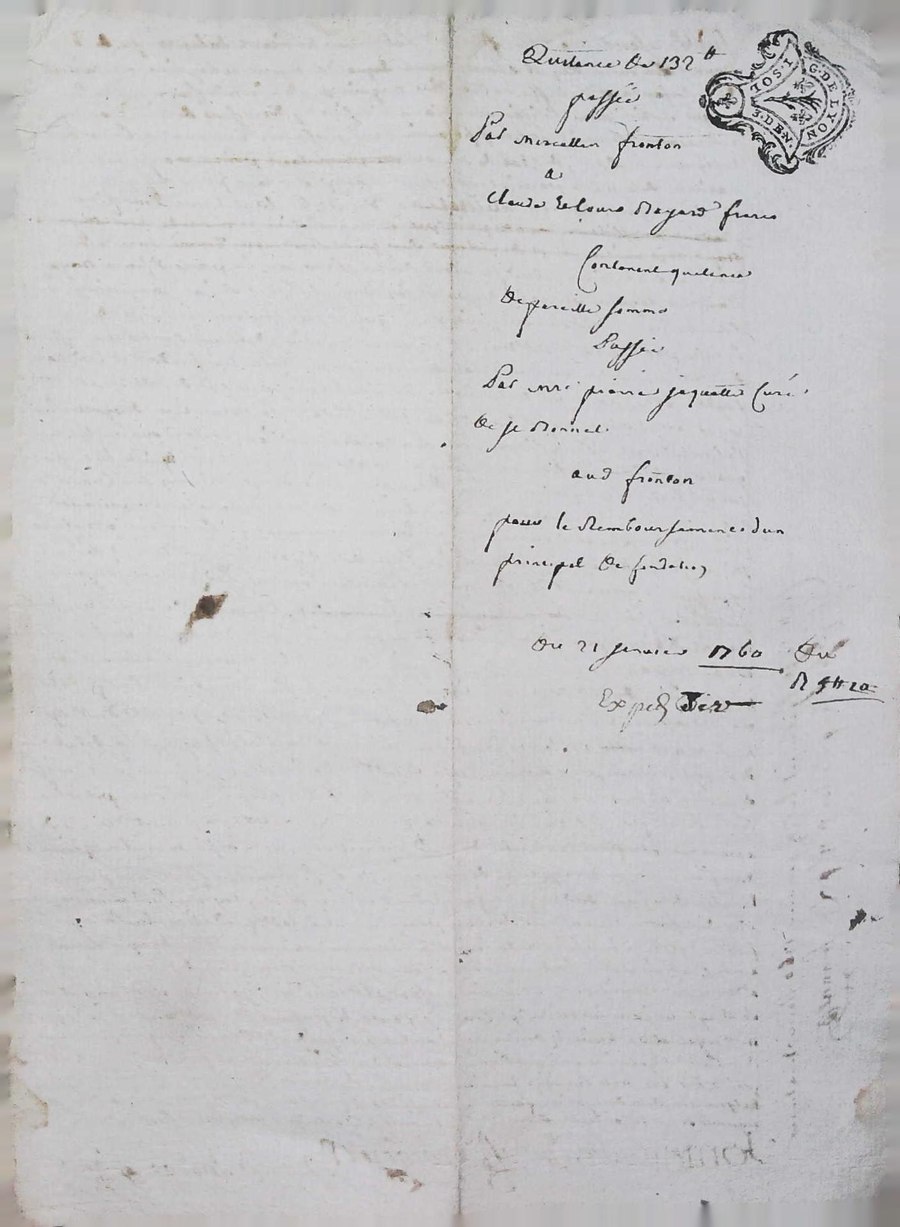 Quitance de 132 ₶
passée
Par Marcellin fronton
a
Claude et Louis Regard freres
Contenant quitance
De pareille somme
Passée
Par mre pierre jaquette Curé
De st Bonnet
aud fronton
pour le Remboursement dun
principal de fondation
Du 21 janvier 1760 Du
R
Exped
G. DE LYON
3. D EN.